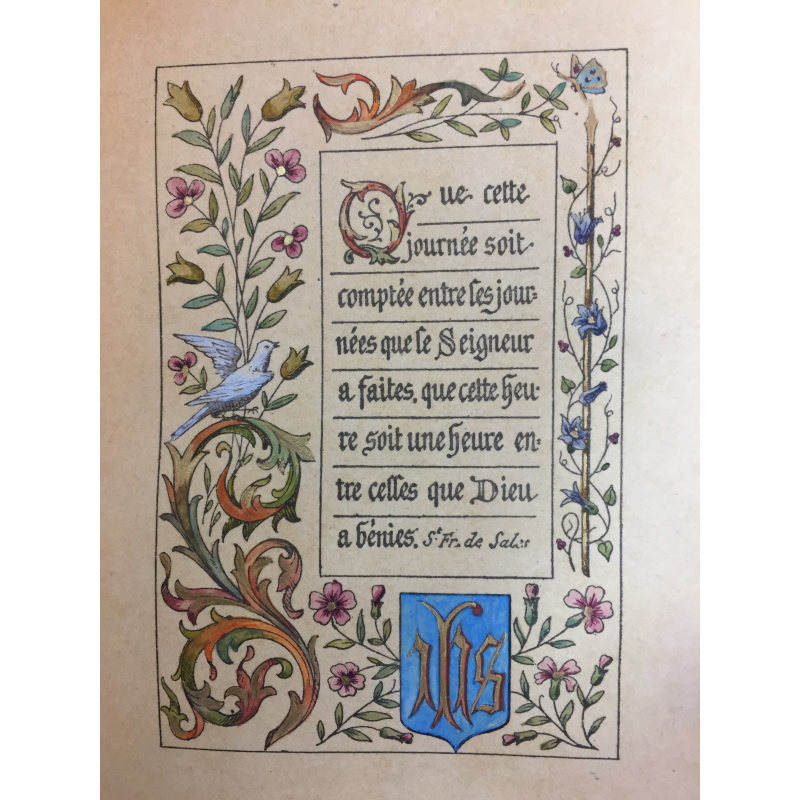 Que cette
journée soit
comptée entre les jour-
nées que le Seigneur
a faites, que cette heu
re soit une heure en-
tre celles que Dieu
a bénies. St Fr. de Sales
IHS